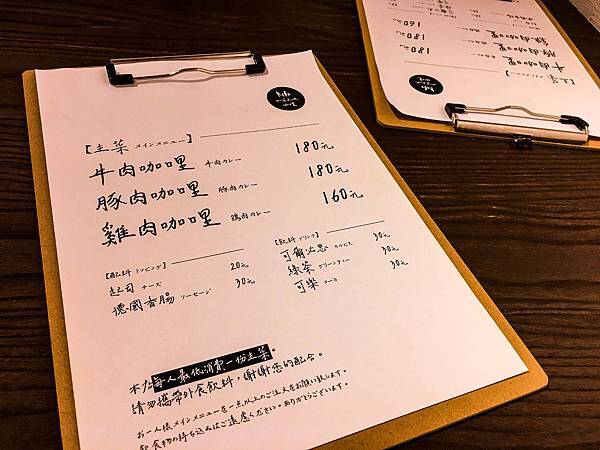 【主菜 メインメニュー】
牛肉咖哩 牛肉カレー 180元
豚肉咖哩 豚肉カレー 180元
雞肉咖哩 鶏肉カレー 160元
【配料 トッピング】
起司 チーズ 20元
德國香腸 ソーセージ 30元
【飲料 ドリンク】
可爾必思 カルピス 30元
綠茶 グリーンティー 30元
可樂 コーラ 30元
本店每人最低消費一份主菜。
請勿攜帶外食飲料，謝謝您的配合。
お一人様メインメニューを一点以上のご注文をお願い致します。
飲食物の持ち込みはご遠慮ください。ありがとうございます。
【主菜
牛肉咖哩 180元
豚肉咖哩 180元
雞肉咖哩 160元